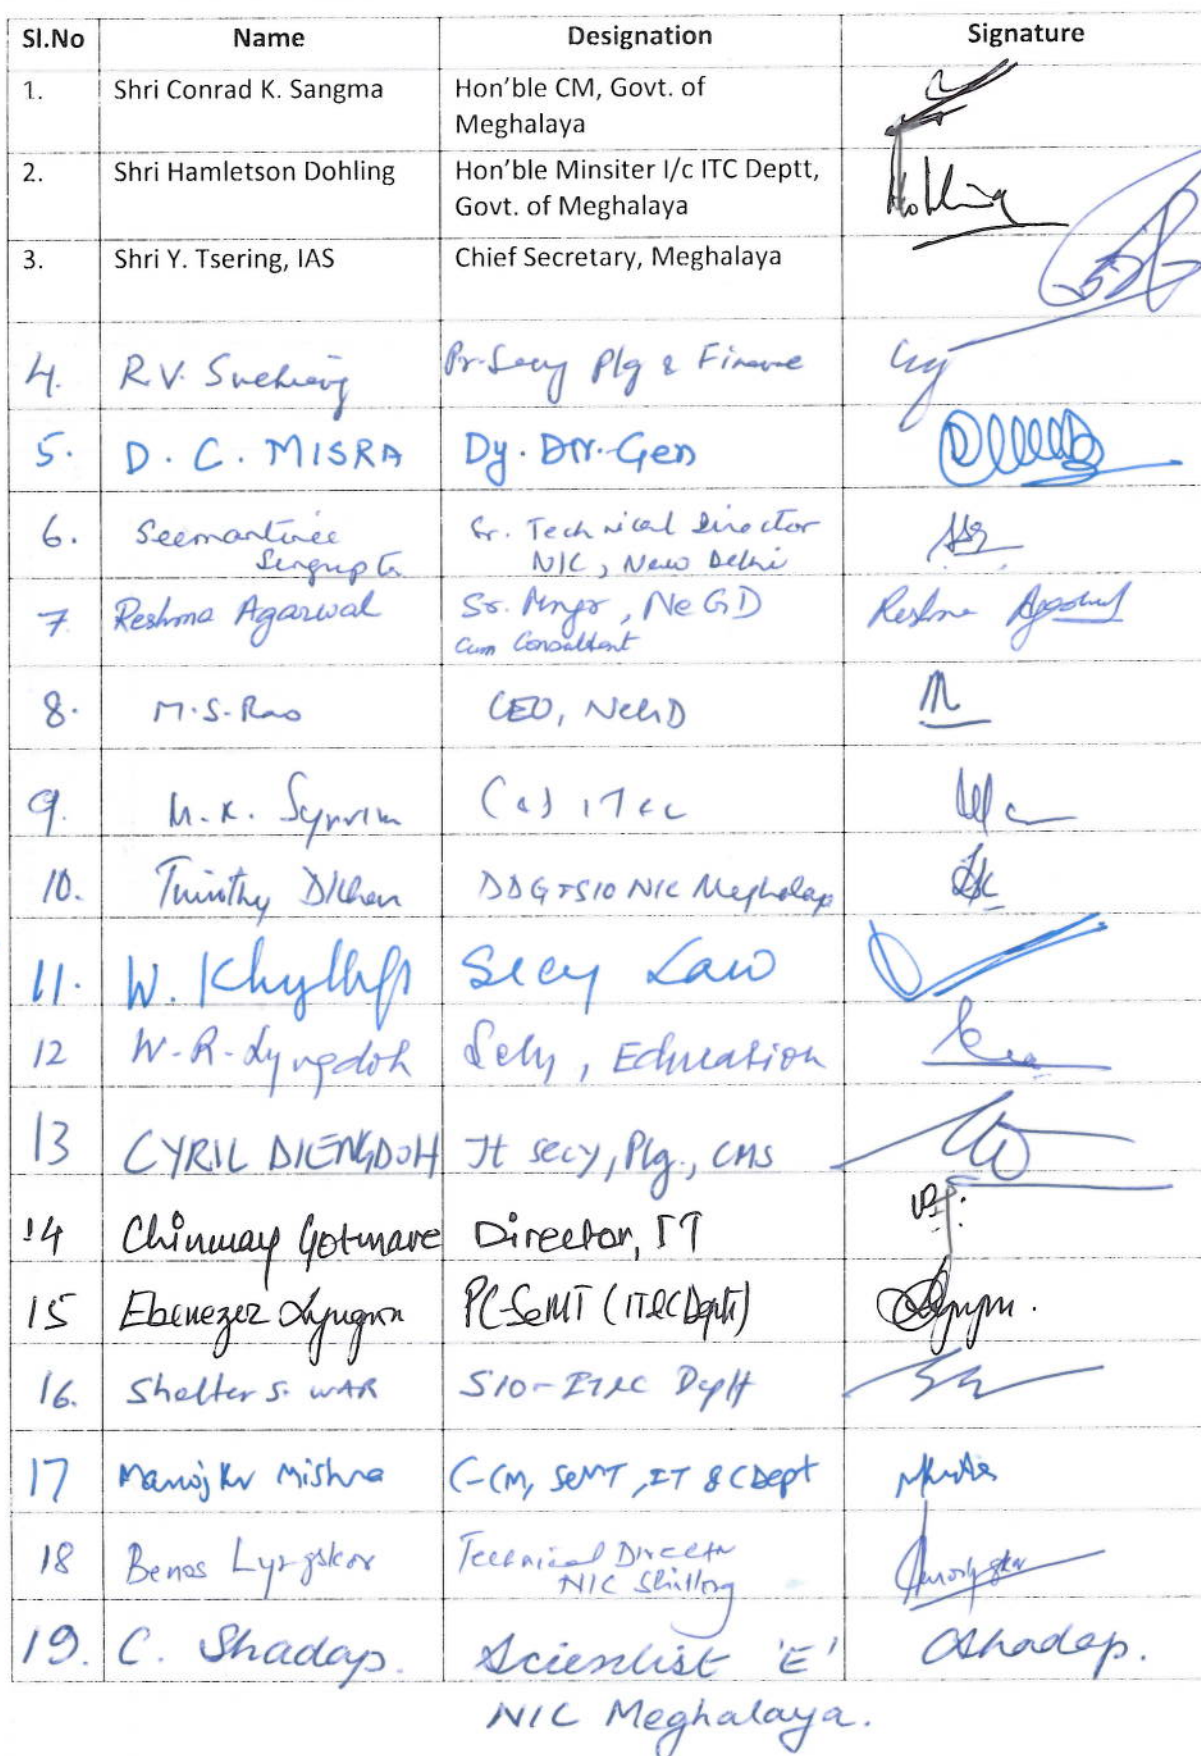 Sl.No Name Designation Signature
1. Shri Conrad K. Sangma Hon'ble CM, Govt. of
Meghalaya
2. Shri Hamletson Dohling Hon'ble Minsiter I/c ITC Deptt,
Govt. of Meghalaya
3. Shri Y. Tsering, IAS Chief Secretary, Meghalaya
4. R.V. Suchiang Pr. Secy Plg & Finance
5. D. C. MISRA Dy. Dir. Gen
6. Seemantinee Sr. Technical Director
Sengupta NIC, New Delhi
7 Reshma Agarwal Sr. Mngr, NeGD Reshma Agarwal
Cum Consultant
8. M.S. Rao CEO, NeGD
9. M.K.
10. Timothy Dkhar DDG & SIO NIC Meghalaya
11. W. Khyllep Secy Law
12 W.R. Lyngdoh Secy, Education
13 CYRIL DIENGDOH Jt secy, Plg., CMS
14 Chinmay Gotmare Director, IT
15 Ebenezer PC-SeMT (IT&C Deptt)
16. Shelter S. WAR SIO-IT&C Deptt
17 Manoj Kr Mishra C-CM, SeMT, IT & C Dept
18 Benos Lyngskor Technical Director
NIC Shillong
19. C. Shadap. Scientist 'E' CShadap.
NIC Meghalaya.